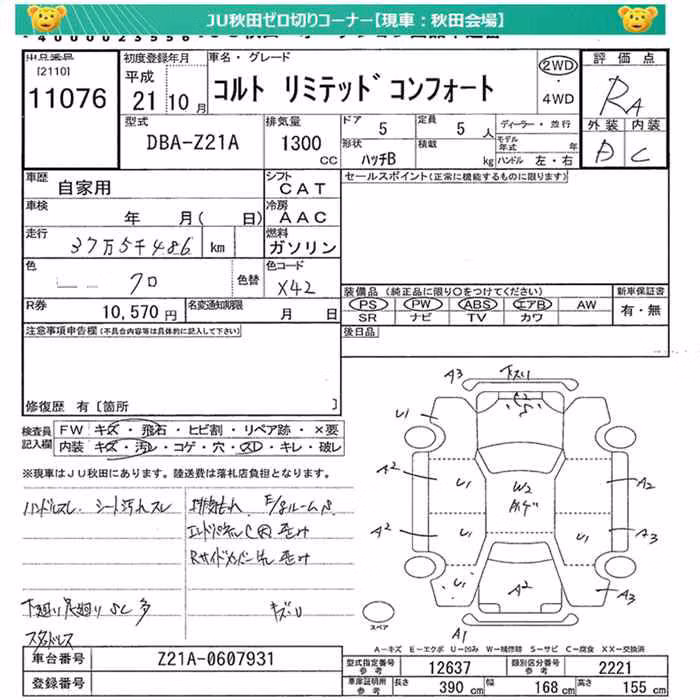 JU秋田ゼロ切りコーナー【現車：秋田会場】
出品番号
[2110]
11076
初度登録年月
平成
21 10月
車名・グレード
コルト リミテッド コンフォート
2WD
・
4WD
評価点
RA
外装 内装
D C
型式
DBA-Z21A
排気量
1300
CC
ドア
5
定員
5 人
形状
ハッチB
積載
kg
ディーラー・並行
モデル年式 年
ハンドル 左・右
車歴
自家用
シフト
CAT
セールスポイント(正常に機能するものに限ります)
車検
年 月( 日)
冷房
AAC
走行
37万5千486 km
燃料
ガソリン
色
クロ
色替
色コード
X42
R券
10,570円
名変通知期限
月 日
装備品 (純正品に限り○をつけてください)
PS PW ABS エアB AW
SR ナビ TV カワ
新車保証書
有・無
後日品
注意事項申告欄(不具合内容等は具体的に記入して下さい)
修復歴 有[箇所 ]
検査員
記入欄
FW キズ・飛石・ヒビ割・リペア跡・×要
内装 キズ・汚レ・コゲ・穴・スレ・キレ・破レ
※現車はJU秋田にあります。陸送費は落札店負担となります。
ハンドルスレ シート汚れスレ
エンドパネルC
下廻り 足廻り SC 多
キズU
スタッドレス
A3 下スリ
U1
A2 U1 W2 A2
A2 U1 U1 A3
U1 A2 A3
A1
スペア
A－キズ E－エクボ U－凹み W－補修跡 S－サビ C－腐食 XX－交換済
車台番号
Z21A-0607931
登録番号
型式指定番号
参考
12637
類別区分番号
参考
2221
車庫証明用
参考
長さ
390 cm
幅
168 cm
高さ
155 cm